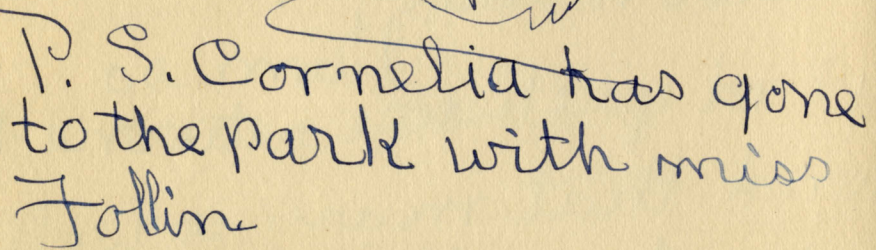 P. S. Cornelia has gone
to the park with miss
Follin